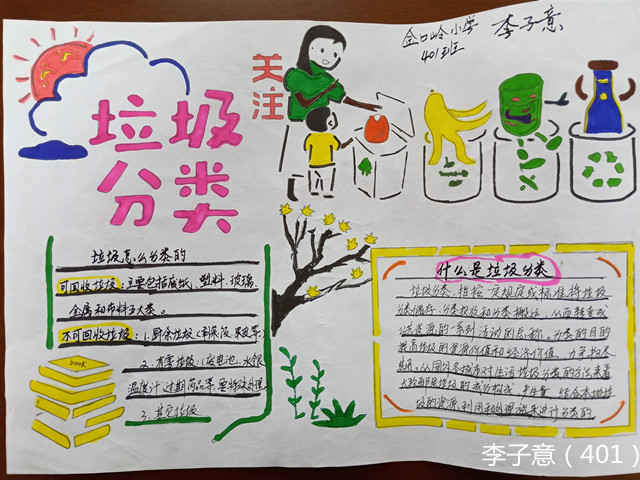 金口岭小学
401班
李子意
关注
垃圾
分类
垃圾怎么分类的
可回收垃圾：主要包括废纸、塑料、玻璃、
金属和布料五大类。
不可回收垃圾：1.厨余垃圾
2.有害垃圾：
温度计 过期药品等
3.其它垃圾
BOOK
什么是垃圾分类
垃圾分类，指按一定规定或标准将垃圾
分类储存、分类投放和分类搬运，从而转变成
公共资源的一系列活动的总称。分类的目的
是提高垃圾的资源价值和经济价值，力争物尽
其用。从国内外城市对生活垃圾分类的方法来看
大致都是根据垃圾的成分构成、产生量，结合本地垃
圾的资源利用和处理方式来进行分类的
李子意（401）